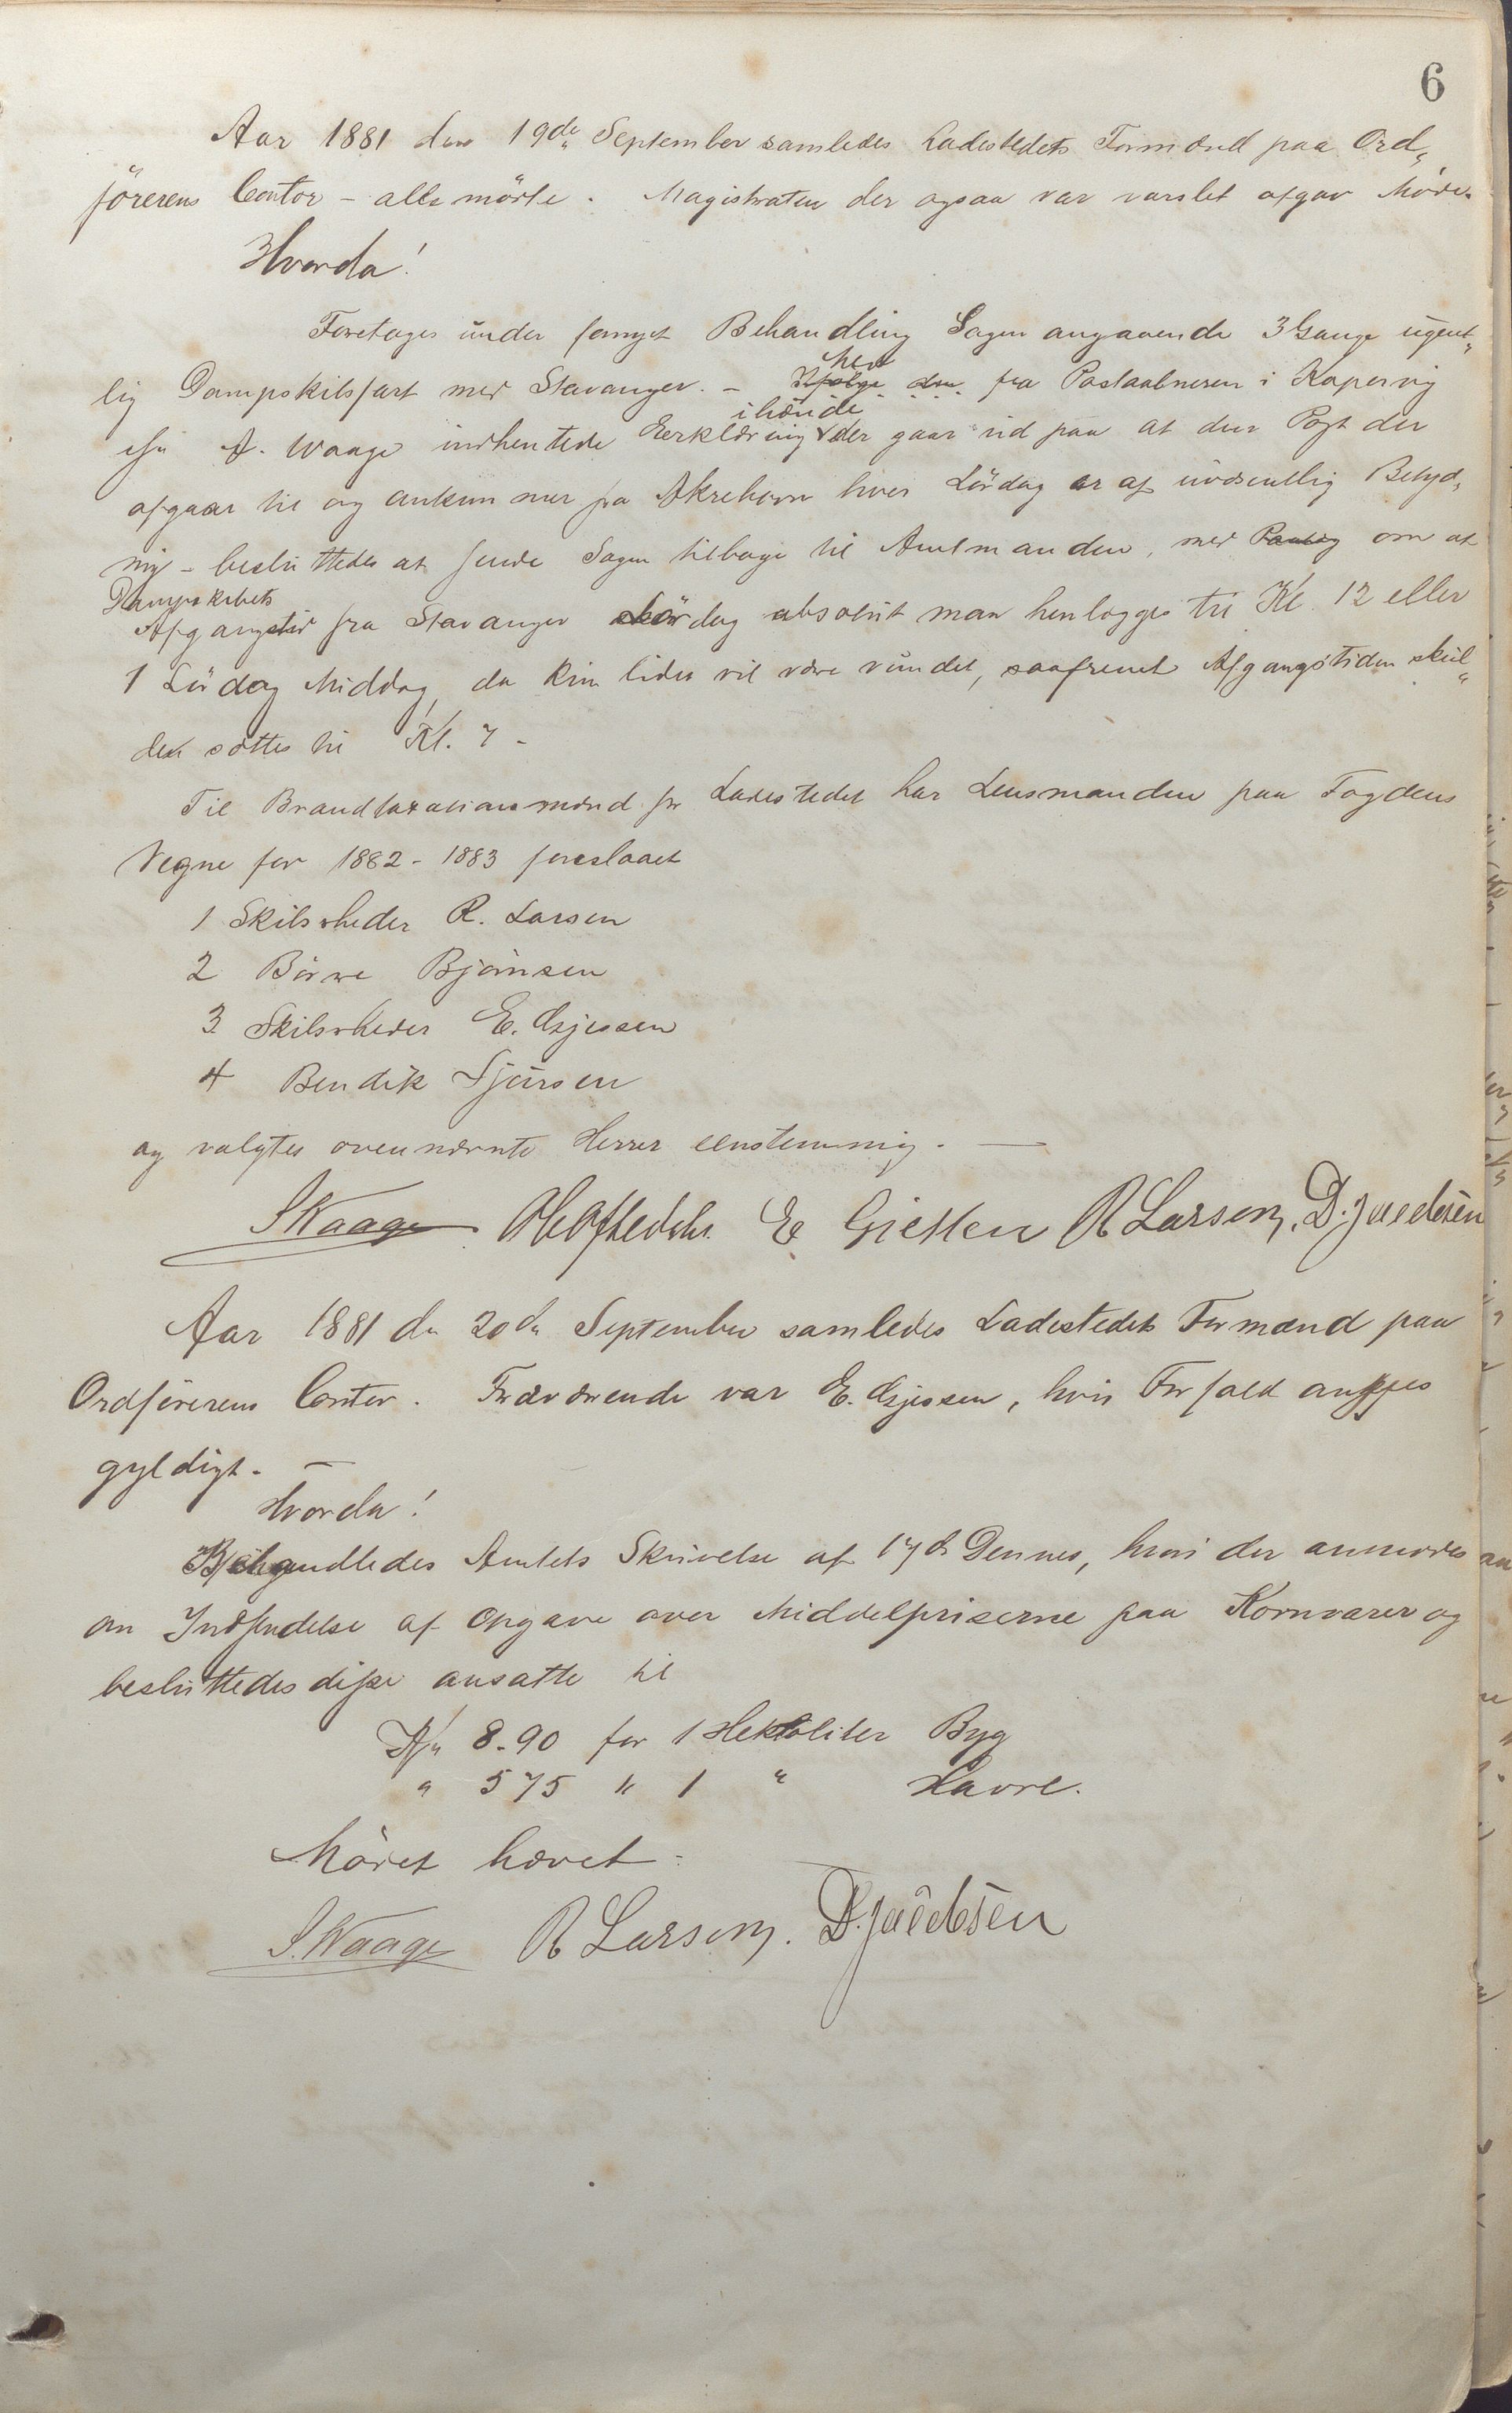 6
Aar 1881 den 19de September samledes Ladestedets Formænd paa Ord„
förerens Contor – alle mödte. Magistraten der ogsaa var varslet afgav Möde.
Hvorda!
Foretoges under fornyet Behandling Sagen angaaende 3 Gange ugent„
lig Dampskibsfart med Stavanger. – Ifølge den fra Postaabneren i Kopervig
A. Waage indhentede Erklæring ihænde der gaar ud paa at den Post der
afgaar til og ankommer fra Akrehavn hver Lördag er af uvæsentlig Betyd„
ning – besluttedes at sende Sagen tilbage til Amtmanden, med Paalæg om at
Dampskibets
Afgangstid fra Stavanger Lördag absolut maa henlægges til Kl. 12 eller
1 Lördag Middag, da kun lidet vil være vundet, saafremt Afgangstiden skul„
de sættes til Kl. 7 –
Til Brandtaxationsmænd for Ladestedet har Lensmanden paa Fogdens
Vegne for 1882 – 1883 foreslaaet
1 Skibsrheder R. Larsen
2 Börre Björnsen
3 Skibsrheder E. Gjessen
4 Bendik Sjursen
og valgtes ovennævnte Herrer eenstemmig. —
S Waage E Giessen R Larsen. D. Jacobsen
Aar 1881 den 20de September samledes Ladestedets Formænd paa
Ordförerens Contor. Fraværende var E. Gjessen, hvis Forfald ansees
gyldigt. –
Hvorda!
Behandledes Amtets Skrivelse af 17de Dennes, hvori der anmodes
om Indsendelse af Opgave over Middelpriserne paa Kornvarer og
besluttedes disse ansatte til
Kr 8.90 for 1 Hektoliter Byg
" 575 " 1 " Havre.
Mödet hævet.
S. Waage R Larsen. D. Jacobsen